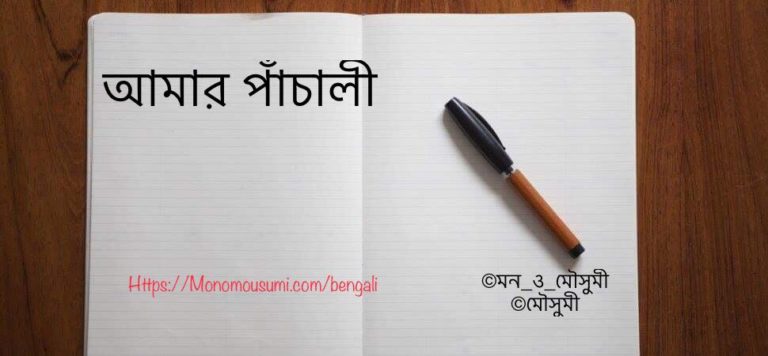 আমার পাঁচালী
Https://Monomousumi.com/bengali
©মন_ও_মৌসুমী
©মৌসুমী